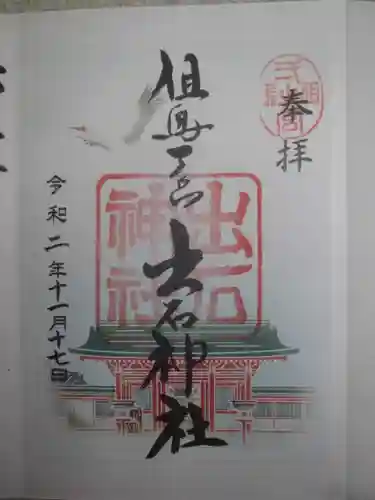 奉拝
但馬一宮 出石神社
出石
神社
令和二年十一月十七日